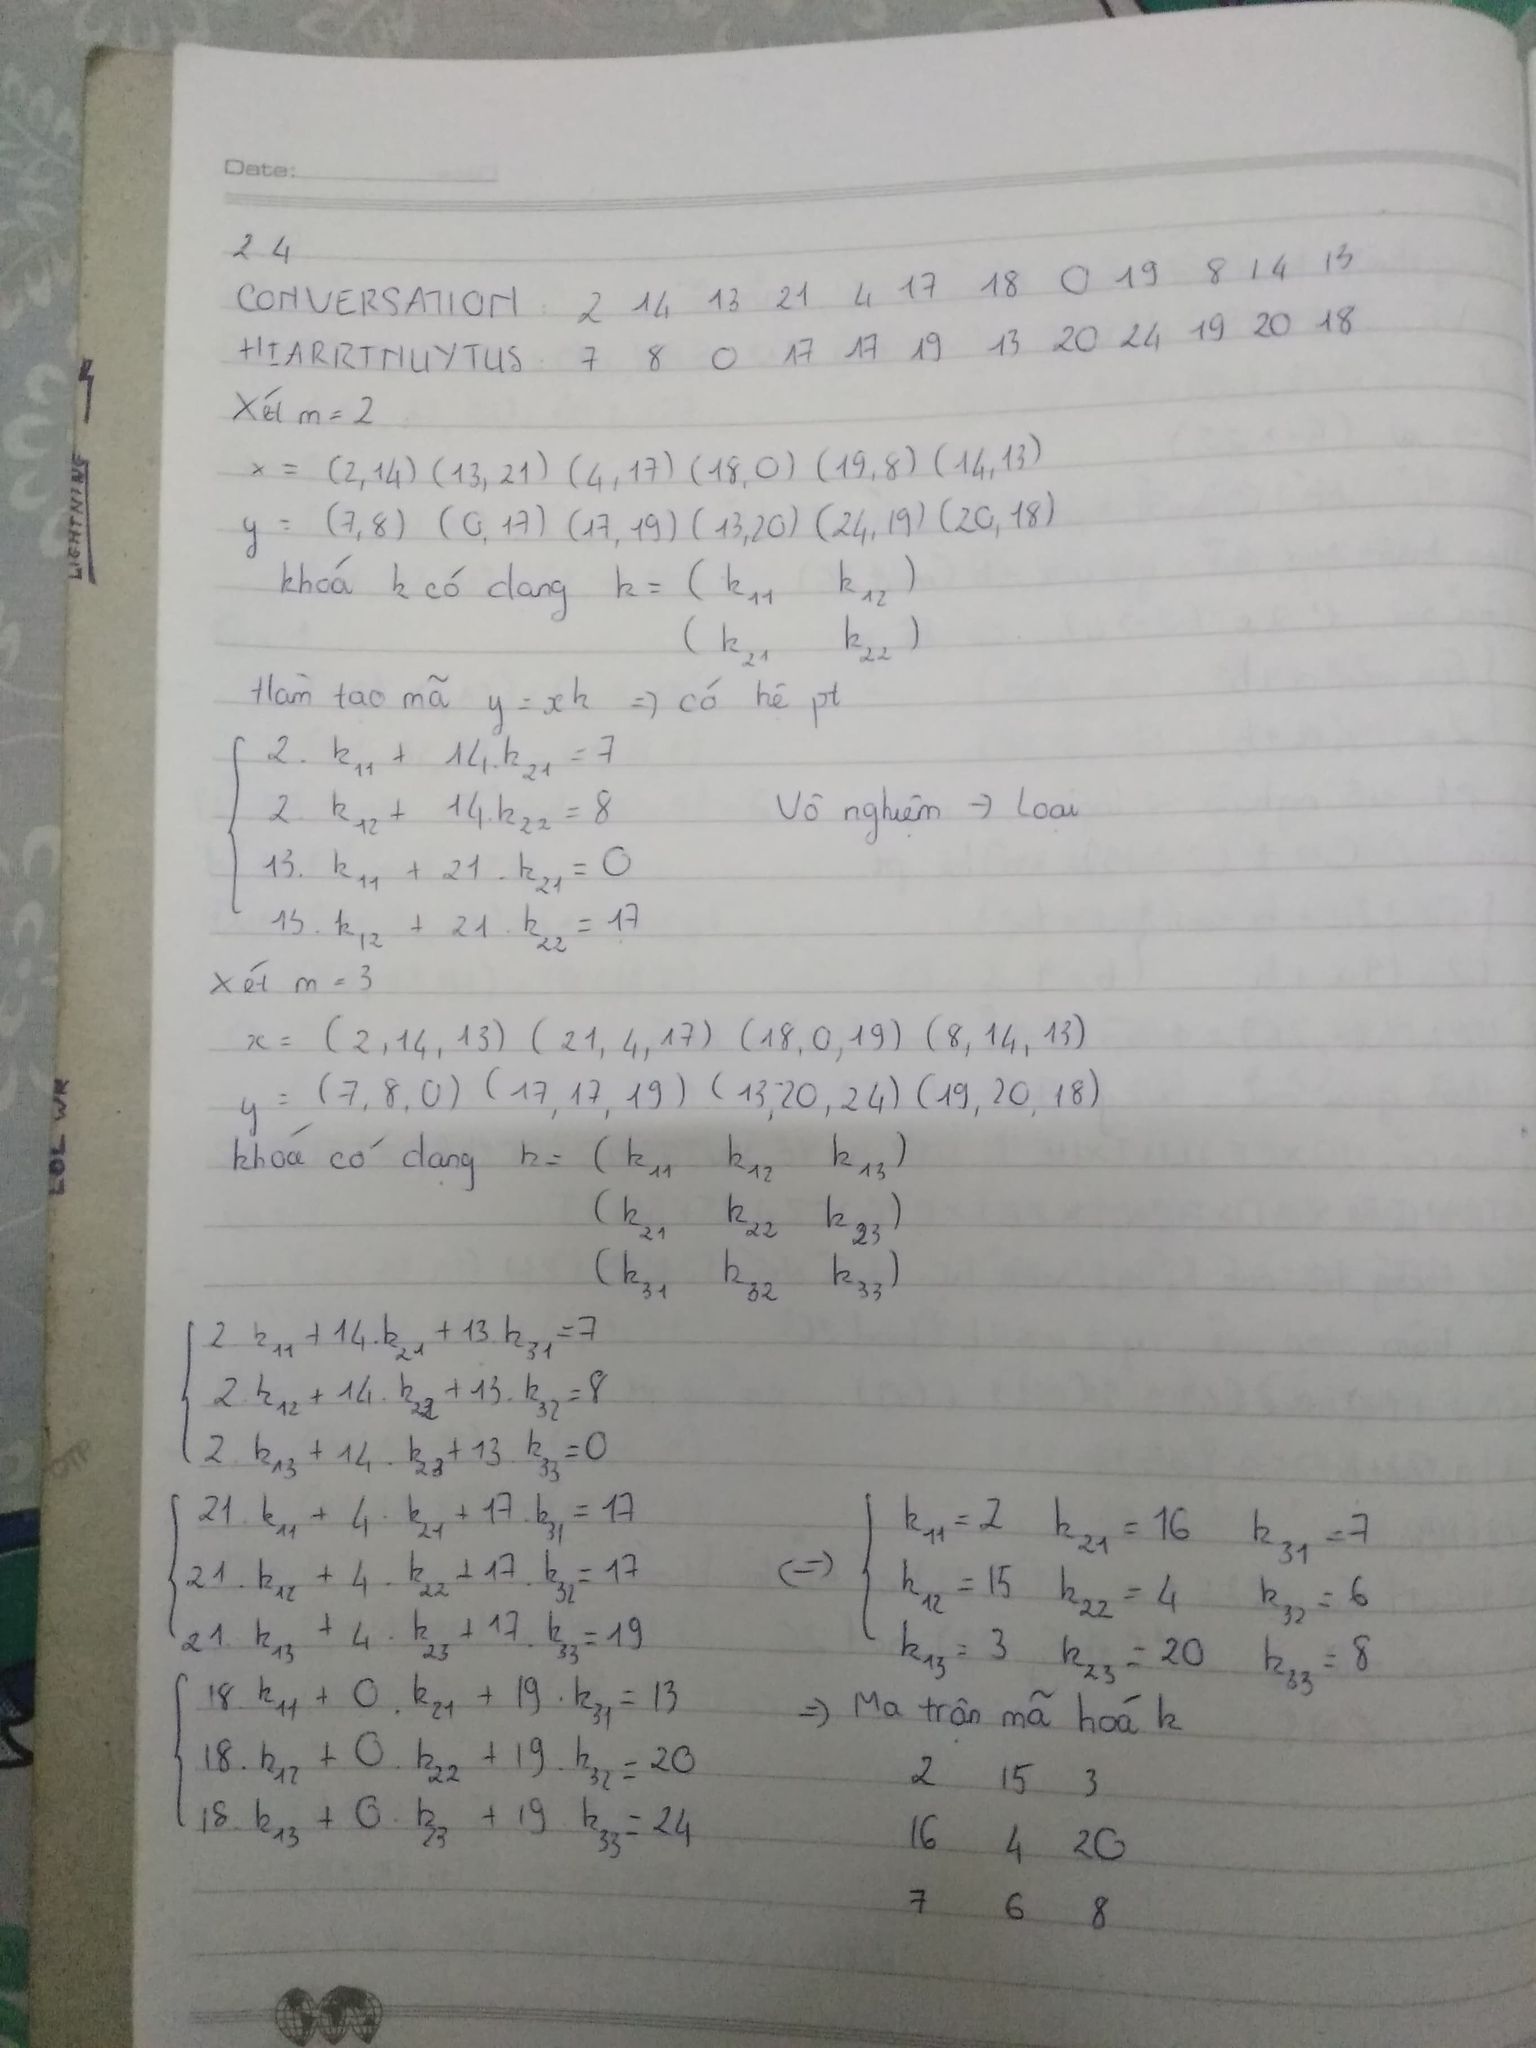 Date:
2 4
CONVERSATION : 2 14 13 21 4 17 18 0 19 8 14 13
HIARRTNUYTUS : 7 8 0 17 17 19 13 20 24 19 20 18
Xét m = 2
x = (2,14) (13,21) (4,17) (18,0) (19,8) (14,13)
y = (7,8) (0,17) (17,19) (13,20) (24,19) (20,18)
khoá k có dang k = ( k11 k12 )
( k21 k22 )
Hàm tao mã y = xk => có hê pt
2. k11 + 14.k21 = 7
2 k12 + 14.k22 = 8 Vô nghiệm -> Loại
13. k11 + 21 . k21 = 0
13. k12 + 21 . k22 = 17
Xét m = 3
x = (2,14,13) (21,4,17) (18,0,19) (8,14,13)
y = (7,8,0) (17,17,19) (13,20,24) (19,20,18)
khoá có dạng k = ( k11 k12 k13 )
( k21 k22 k23 )
( k31 k32 k33 )
2 k11 + 14.k21 + 13 k31 = 7
2.k12 + 14.k22 + 13.k32 = 8
2 k13 + 14.k23 + 13 k33 = 0
21. k11 + 4. k21 + 17.k31 = 17 k11 = 2 k21 = 16 k31 = 7
21. k12 + 4. k22 + 17. k32 = 17 (=) k12 = 15 k22 = 4 k32 = 6
21 k13 + 4. k23 + 17. k33 = 19 k13 = 3 k23 = 20 k33 = 8
18. k11 + 0. k21 + 19. k31 = 13 => Ma trân mã hoá k
18. k12 + 0. k22 + 19. k32 = 20 2 15 3
18. k13 + 0. k23 + 19 k33 = 24 16 4 20
7 6 8
LIGHTNING
LOL WR